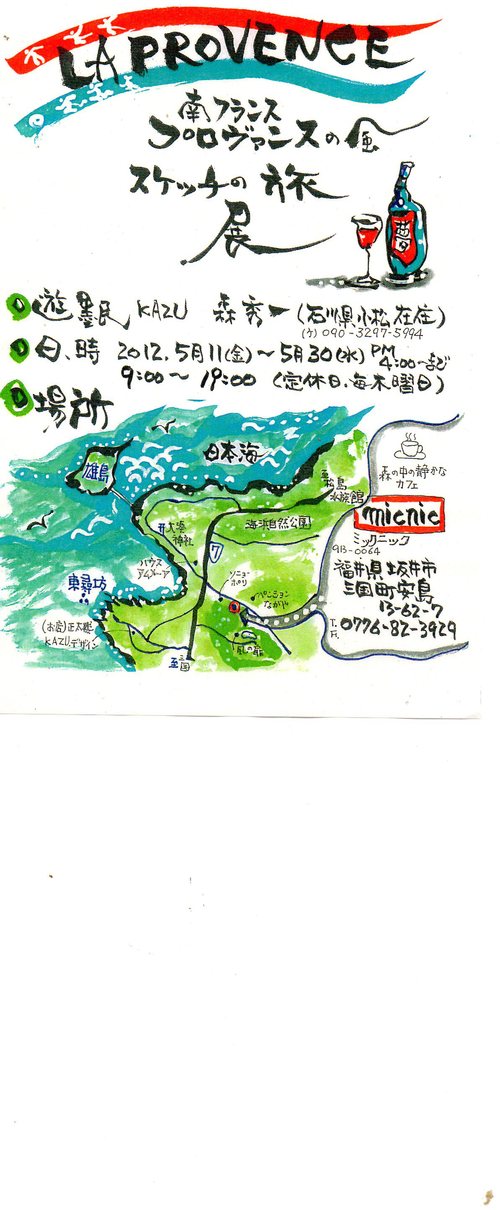 LA PROVENCE
南フランス
プロヴァンスの風
スケッチの旅
展
遊墨民 KAZU 森秀一 (石川県小松在住)
090-3297-5994
日、時 2012.5月11(金)～5月30(水) PM 4:00まで
9:00～19:00 (定休日、毎木曜日)
場所
雄島
日本海
松島
水族館
海浜自然公園
神社
7
ハウス
アムズーア
東尋坊
ペンション
なかや
(お店)正太郎
KAZUデザイン
至三国
風の扉
森の中の静かな
カフェ
micnic
ミックニック
913-0064
福井県坂井市
三国町安島
13-62-7
T.
F. 0776-82-3929